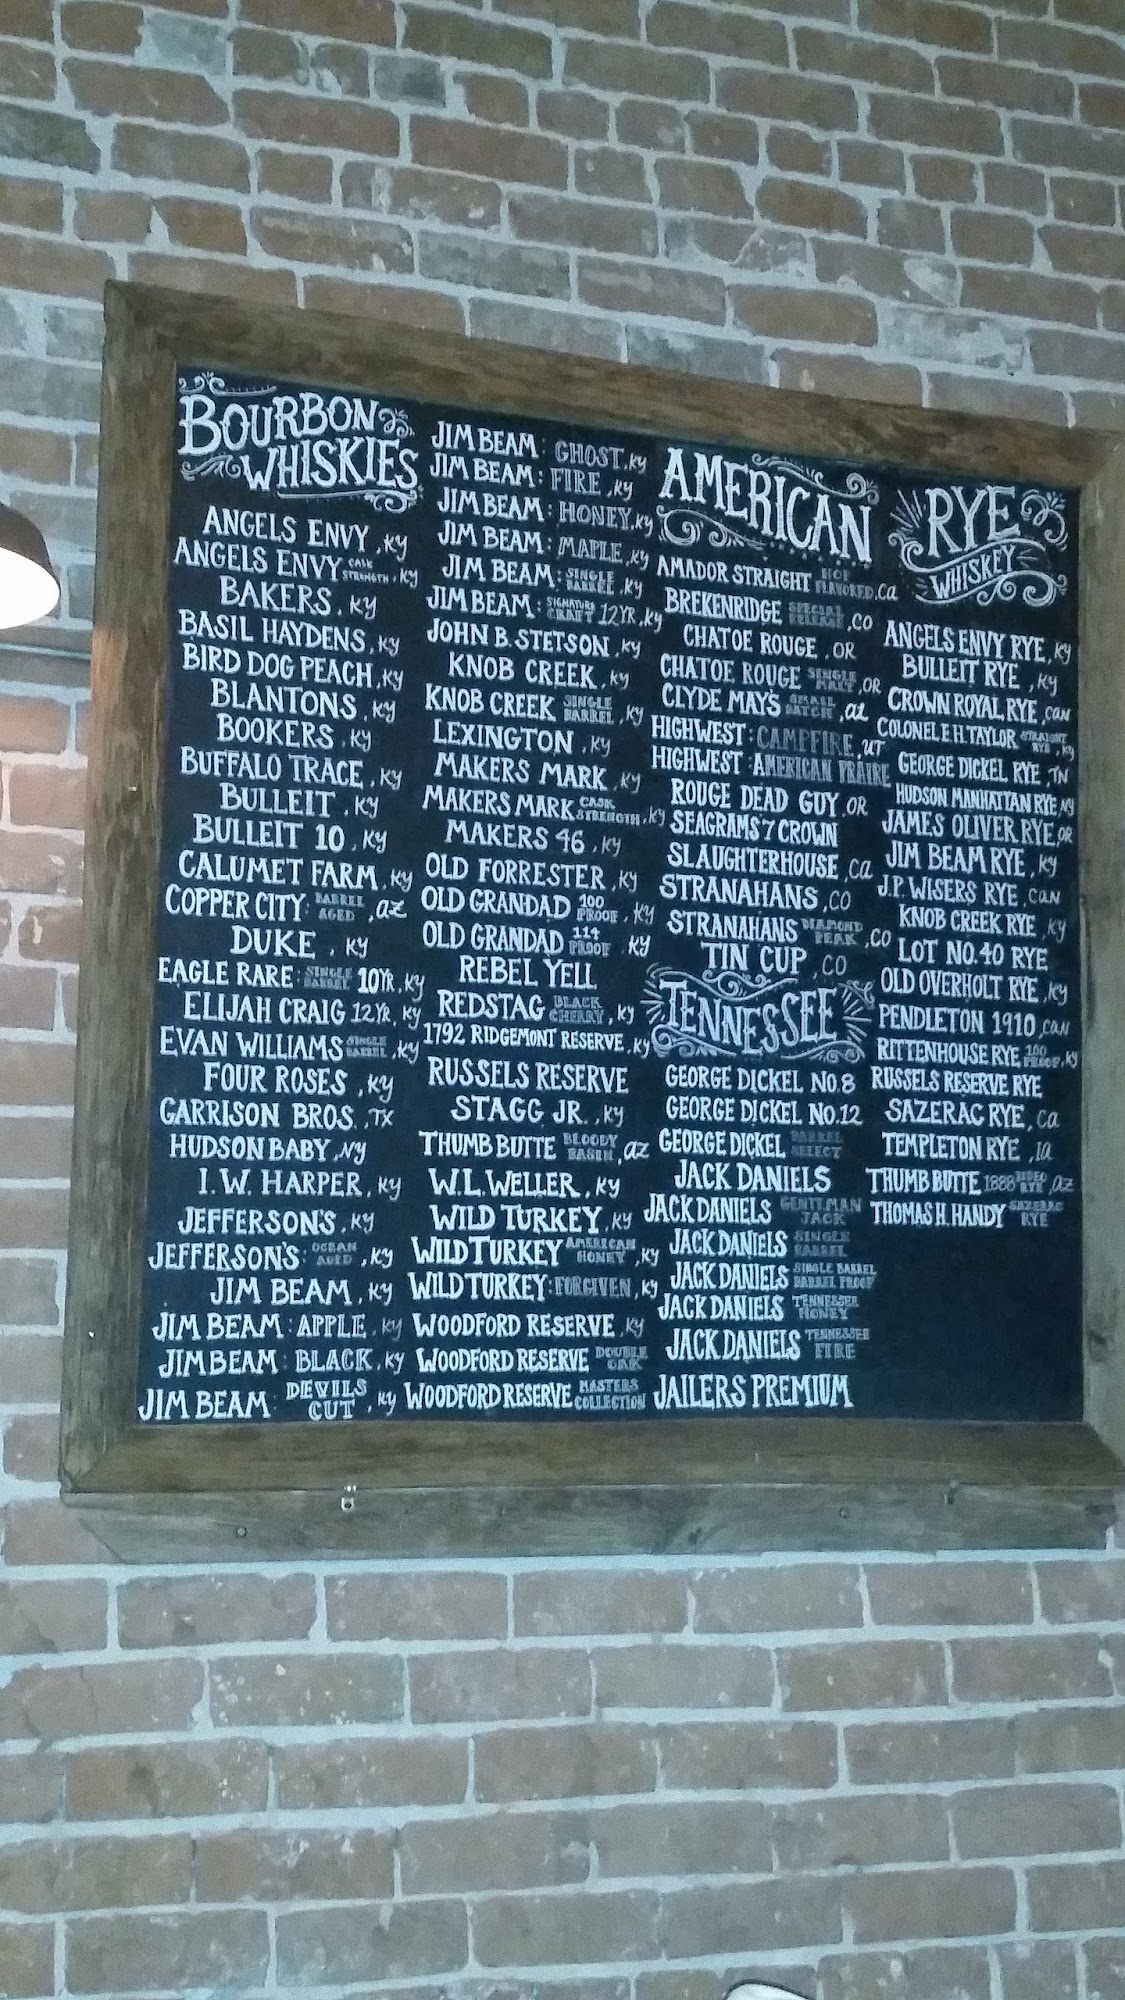 BOURBON
WHISKIES
ANGELS ENVY, KY
ANGELS ENVY CASK STRENGTH, KY
BAKERS, KY
BASIL HAYDENS, KY
BIRD DOG PEACH, KY
BLANTONS, KY
BOOKERS, KY
BUFFALO TRACE, KY
BULLEIT, KY
BULLEIT 10, KY
CALUMET FARM, KY
COPPER CITY: BARREL AGED, AZ
DUKE, KY
EAGLE RARE: SINGLE BARREL 10YR, KY
ELIJAH CRAIG 12YR, KY
EVAN WILLIAMS SINGLE BARREL, KY
FOUR ROSES, KY
GARRISON BROS., TX
HUDSON BABY, NY
I. W. HARPER, KY
JEFFERSON'S, KY
JEFFERSON'S: OCEAN AGED, KY
JIM BEAM, KY
JIM BEAM: APPLE, KY
JIM BEAM: BLACK, KY
JIM BEAM: DEVILS CUT, KY
JIM BEAM: GHOST, KY
JIM BEAM: FIRE, KY
JIM BEAM: HONEY, KY
JIM BEAM: MAPLE, KY
JIM BEAM: SINGLE BARREL, KY
JIM BEAM: SIGNATURE CRAFT 12YR, KY
JOHN B. STETSON, KY
KNOB CREEK, KY
KNOB CREEK SINGLE BARREL, KY
LEXINGTON, KY
MAKERS MARK, KY
MAKERS MARK CASK STRENGTH, KY
MAKERS 46, KY
OLD FORRESTER, KY
OLD GRANDAD 100 PROOF, KY
OLD GRANDAD 114 PROOF, KY
REBEL YELL
REDSTAG BLACK CHERRY, KY
1792 RIDGEMONT RESERVE, KY
RUSSELS RESERVE
STAGG JR., KY
THUMB BUTTE BLOODY BASIN, AZ
W.L. WELLER, KY
WILD TURKEY, KY
WILD TURKEY AMERICAN HONEY, KY
WILD TURKEY: FORGIVEN, KY
WOODFORD RESERVE, KY
WOODFORD RESERVE DOUBLE OAK
WOODFORD RESERVE MASTERS COLLECTION
AMERICAN
AMADOR STRAIGHT HOP FLAVORED, CA
BREKENRIDGE SPECIAL RELEASE, CO
CHATOE ROUGE, OR
CHATOE ROUGE SINGLE MALT, OR
CLYDE MAYS SMALL BATCH, AL
HIGHWEST: CAMPFIRE, UT
HIGHWEST: AMERICAN PRAIRE
ROUGE DEAD GUY, OR
SEAGRAMS 7 CROWN
SLAUGHTERHOUSE, CA
STRANAHANS, CO
STRANAHANS DIAMOND PEAK, CO
TIN CUP, CO
TENNESSEE
GEORGE DICKEL NO. 8
GEORGE DICKEL NO. 12
GEORGE DICKEL BARREL SELECT
JACK DANIELS
JACK DANIELS GENTLMAN JACK
JACK DANIELS SINGLE BARREL
JACK DANIELS SINGLE BARREL BARREL PROOF
JACK DANIELS TENNESSEE HONEY
JACK DANIELS TENNESSEE FIRE
JAILERS PREMIUM
RYE
WHISKEY
ANGELS ENVY RYE, KY
BULLEIT RYE, KY
CROWN ROYAL RYE, CAN
COLONEL E.H. TAYLOR STRAIGHT RYE, KY
GEORGE DICKEL RYE, TN
HUDSON MANHATTAN RYE, NY
JAMES OLIVER RYE, OR
JIM BEAM RYE, KY
J.P. WISERS RYE, CAN
KNOB CREEK RYE, KY
LOT NO. 40 RYE
OLD OVERHOLT RYE, KY
PENDLETON 1910, CAN
RITTENHOUSE RYE 100 PROOF, KY
RUSSELS RESERVE RYE
SAZERAC RYE, CA
TEMPLETON RYE, IA
THUMB BUTTE 1888 RYE, AZ
THOMAS H. HANDY SAZERAC RYE